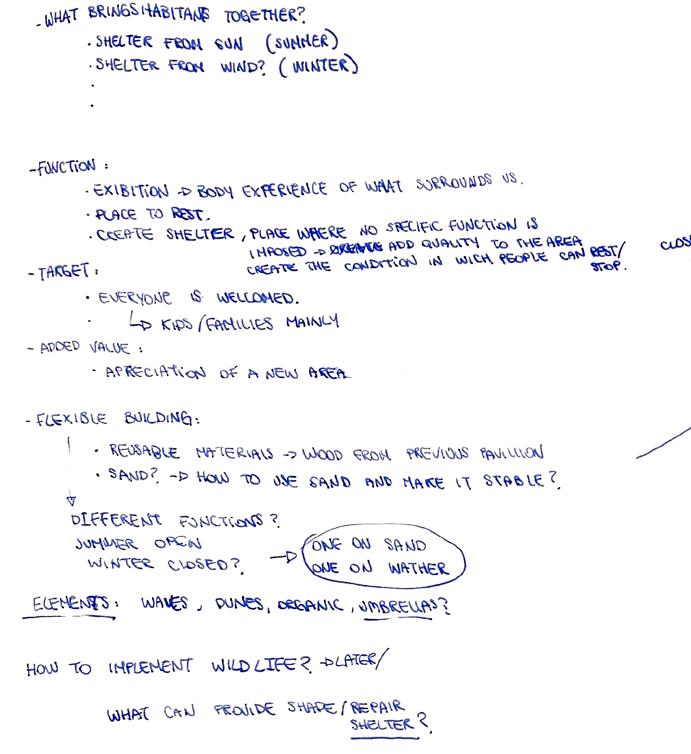 - WHAT BRINGS HABITANS TOGETHER?
· SHELTER FROM SUN (SUMMER)
· SHELTER FROM WIND? (WINTER)
·
·
- FUNCTION :
· EXIBITION → BODY EXPERIENCE OF WHAT SURROUNDS US.
· PLACE TO REST.
· CREATE SHELTER, PLACE WHERE NO SPECIFIC FUNCTION IS
IMPOSED → ADD QUALITY TO THE AREA
CREATE THE CONDITION IN WICH PEOPLE CAN REST/
STOP.
CLOS
- TARGET :
· EVERYONE IS WELCOMED.
· ↳ KIDS/FAMILIES MAINLY
- ADDED VALUE :
· APRECIATION OF A NEW AREA
- FLEXIBLE BUILDING:
· REUSABLE MATERIALS → WOOD FROM PREVIOUS PAVILLION
· SAND? → HOW TO USE SAND AND MAKE IT STABLE?
DIFFERENT FUNCTIONS?
SUMMER OPEN
WINTER CLOSED? →
ONE ON SAND
ONE ON WATHER
ELEMENTS: WAVES, DUNES, ORGANIC, UMBRELLAS?
HOW TO IMPLEMENT WILDLIFE? → LATER/
WHAT CAN PROVIDE SHADE/REPAIR
SHELTER?